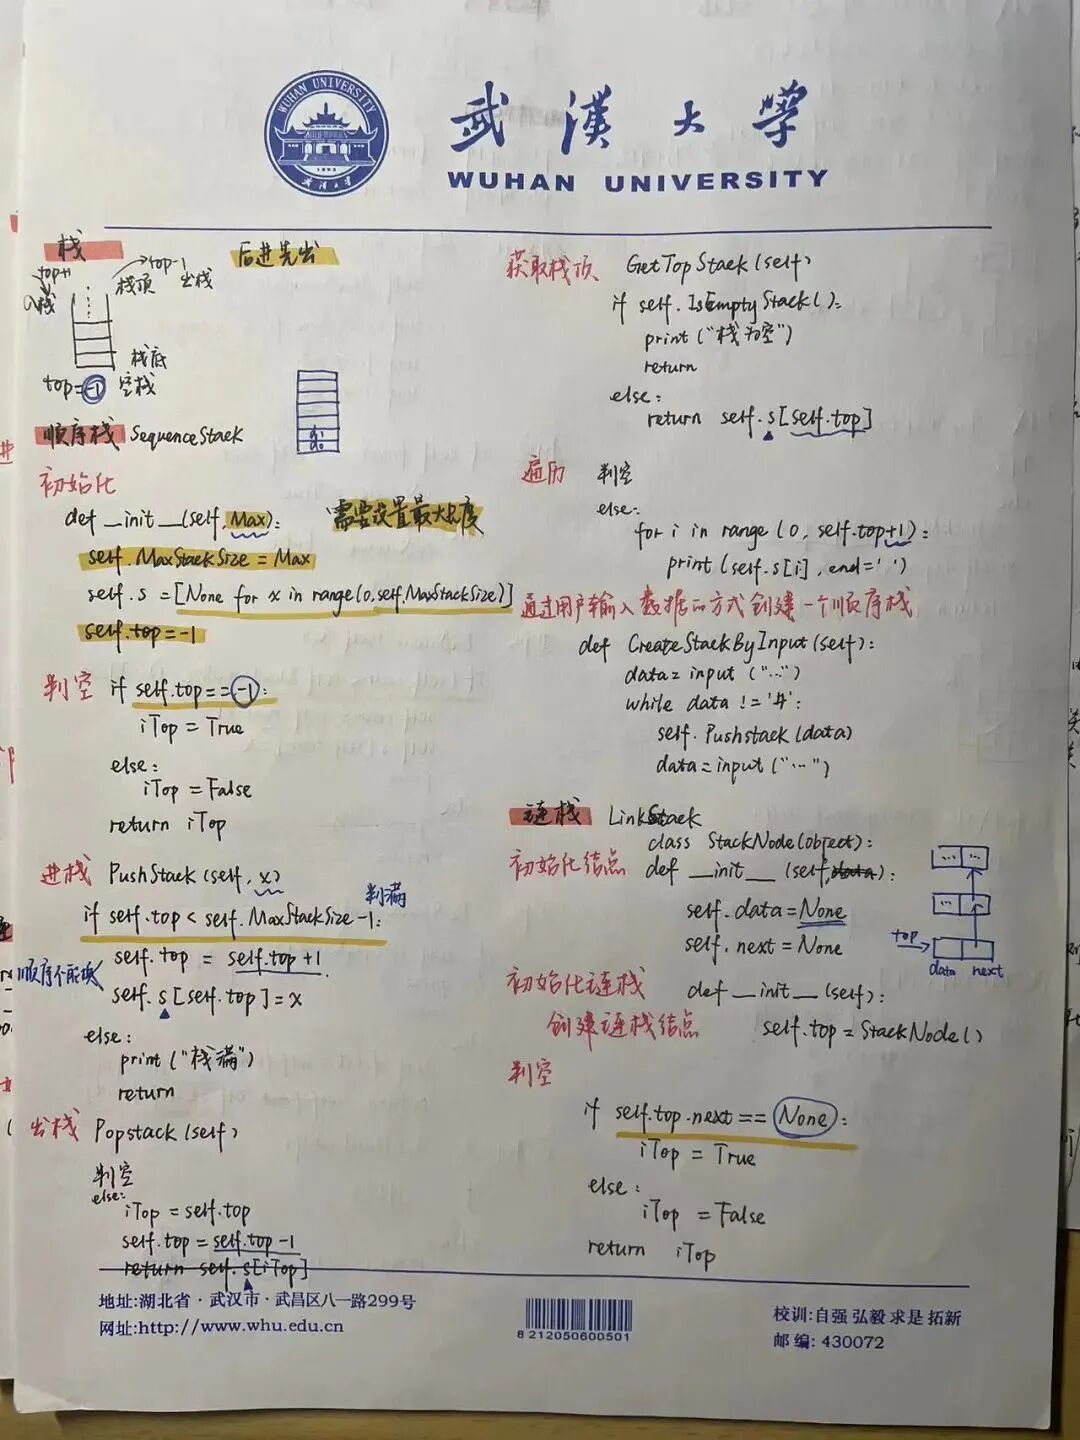 WUHAN UNIVERSITY
1893
武漢大學
武漢大學
WUHAN UNIVERSITY
栈
后进先出
top+1
top-1
入栈
栈顶 出栈
栈底
top=-1 空栈
顺序栈 SequenceStack
a1
a0
初始化
def __init__(self, Max):
需要设置最大长度
self.MaxStackSize = Max
self.s = [None for x in range(0,self.MaxStackSize)]
self.top=-1
判空 if self.top==-1:
iTop = True
else:
iTop = False
return iTop
进栈 PushStack(self, x)
判满
if self.top < self.MaxStackSize-1:
self.top = self.top+1
顺序不能换
self.s[self.top]=x
else:
print("栈满")
return
出栈 Popstack(self)
判空
else:
iTop = self.top
self.top = self.top-1
return self.s[iTop]
获取栈顶 GetTopStack(self)
if self.IsEmptyStack():
print("栈为空")
return
else:
return self.s[self.top]
遍历 判空
else:
for i in range(0, self.top+1):
print(self.s[i], end=' ')
通过用户输入数据的方式创建一个顺序栈
def CreateStackByInput(self):
data=input("...")
while data !='#':
self.Pushstack(data)
data=input("...")
链栈 LinkStack
class StackNode(object):
初始化结点 def __init__(self,data):
self.data=None
self.next=None
... ...
...
top
data next
初始化链栈 def __init__(self):
创建链栈结点 self.top=StackNode()
判空
if self.top.next == None:
iTop = True
else:
iTop = False
return iTop
地址:湖北省·武汉市·武昌区八一路299号
网址:http://www.whu.edu.cn
8 212050600501
校训:自强 弘毅 求是 拓新
邮编: 430072